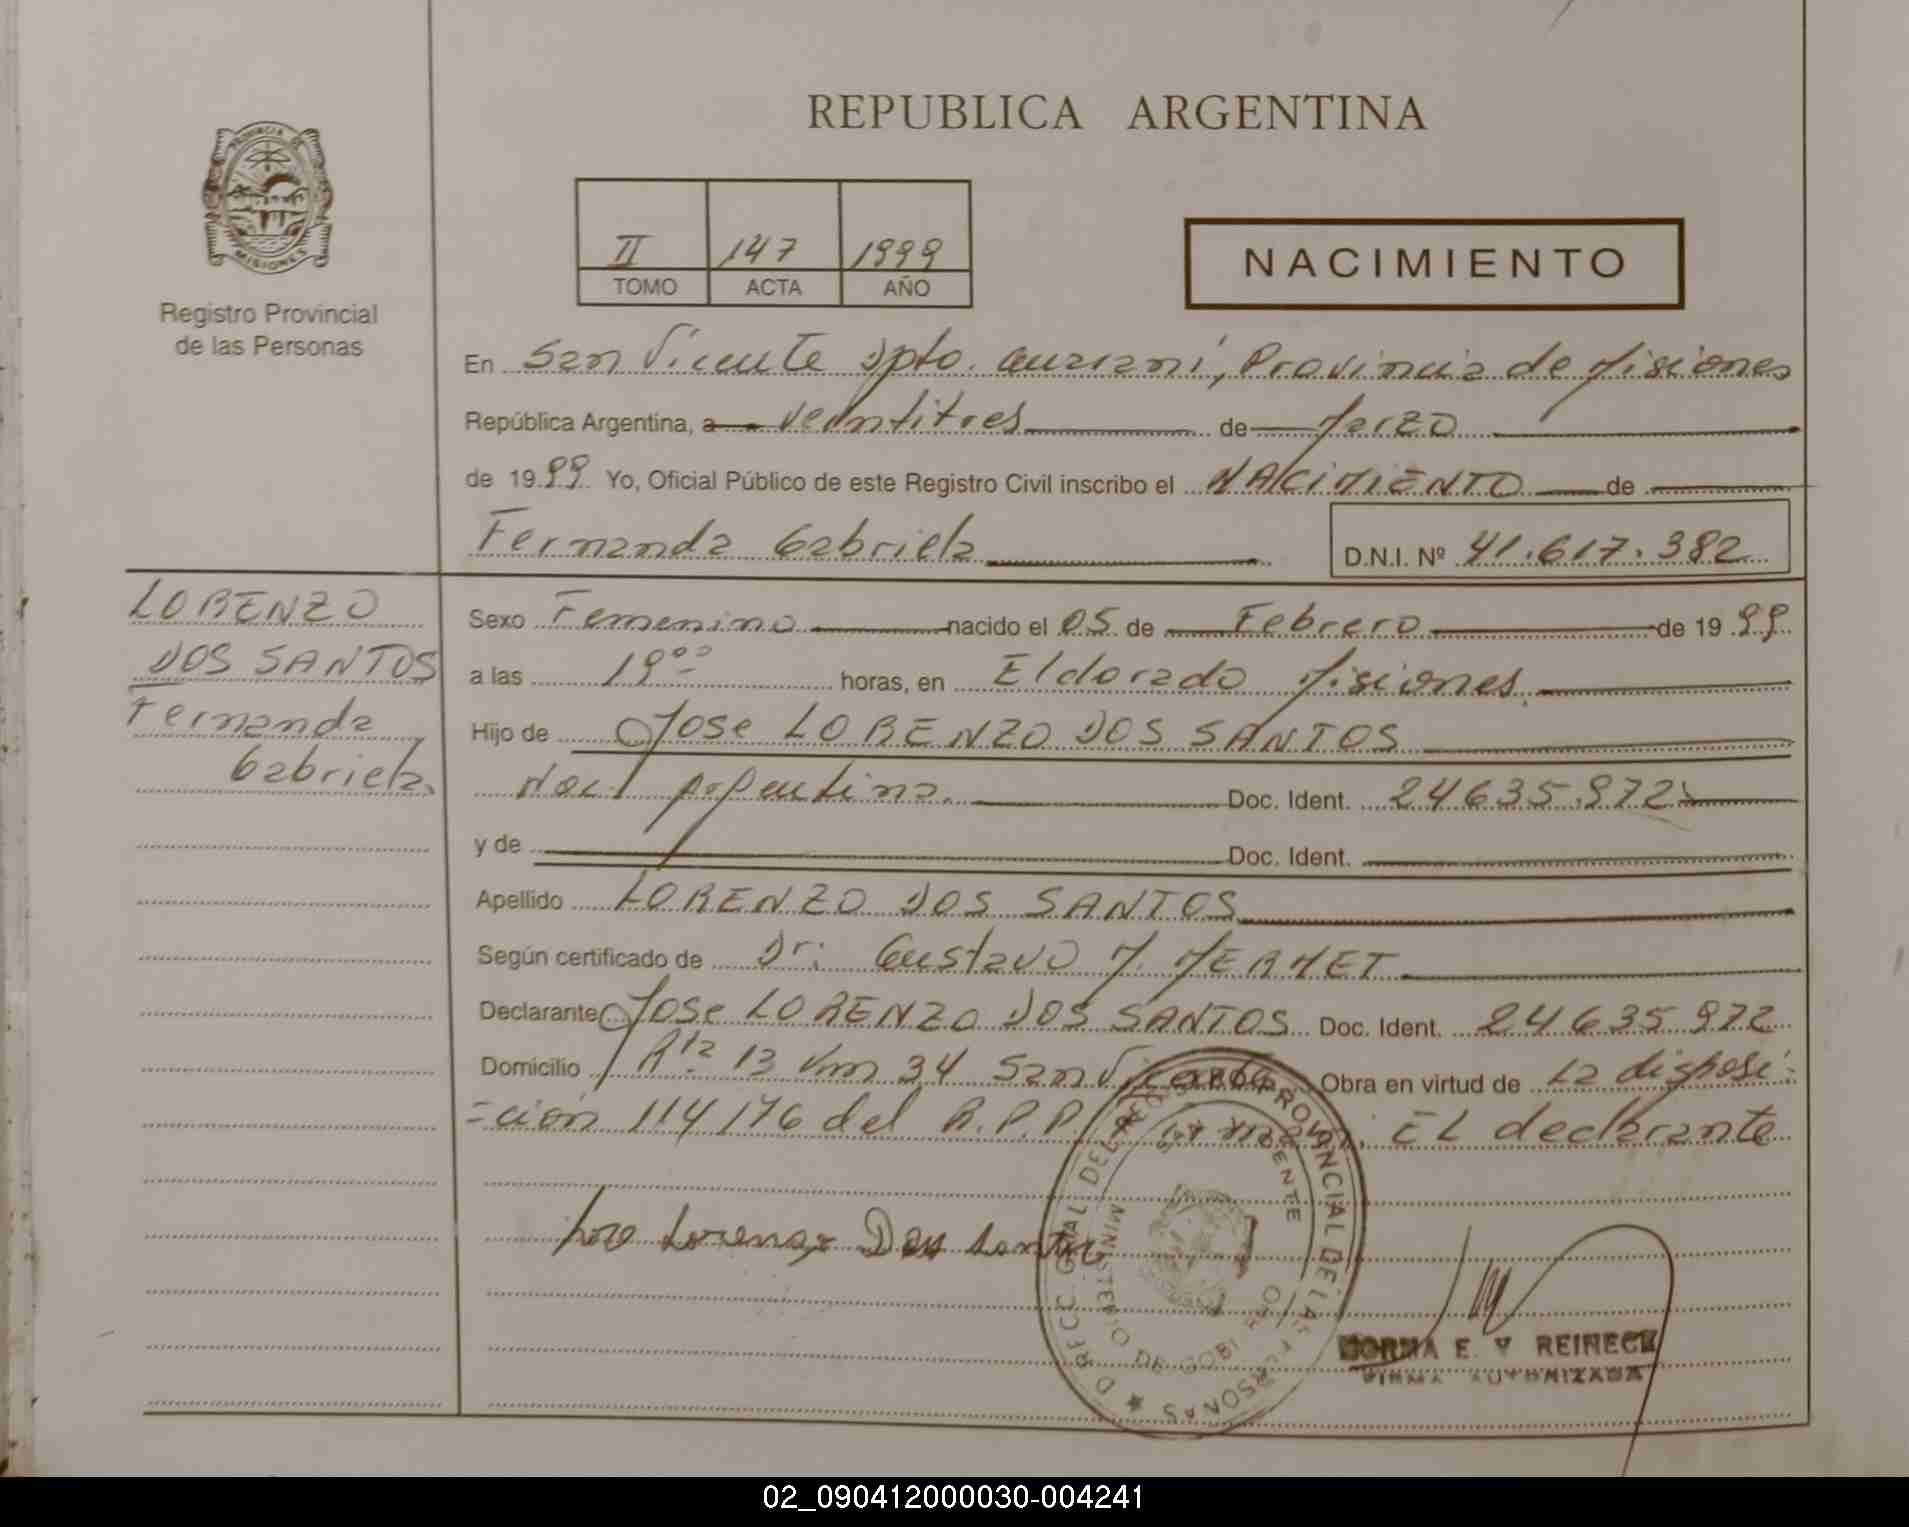 REPUBLICA ARGENTINA
PROVINCIA DE
MISIONES
Registro Provincial
de las Personas
II 147 1999
TOMO ACTA AÑO
NACIMIENTO
En San Vicente Dpto. Guarani, Provincia de Misiones
República Argentina, a veintitres de Marzo
de 1999 Yo, Oficial Público de este Registro Civil inscribo el NACIMIENTO de
Fernanda Gabriela
D.N.I. Nº 41.617.382
LORENZO
DOS SANTOS
Fernanda
Gabriela.
Sexo Femenino nacido el 05 de Febrero de 1999
a las 19°° horas, en Eldorado Misiones.
Hijo de Jose LORENZO DOS SANTOS
Nac. Argentina. Doc. Ident. 24635.972
y de Doc. Ident.
Apellido LORENZO DOS SANTOS
Según certificado de Dr. Gustavo M. MERMET
Declarante Jose LORENZO DOS SANTOS Doc. Ident. 24635972
Domicilio Rta 13 Km 34 San Vicente Obra en virtud de La disposi=
=ción 114/76 del R.P.P. EL declarante
Jose Lorenzo Dos Santos
DIRECC. GRAL DEL REG. PROVINCIAL DE LAS PERSONAS
MINISTERIO DE GOBIERNO
SAN VICENTE
NORMA E. V REINECK
FIRMA AUTORIZADA
02_090412000030-004241